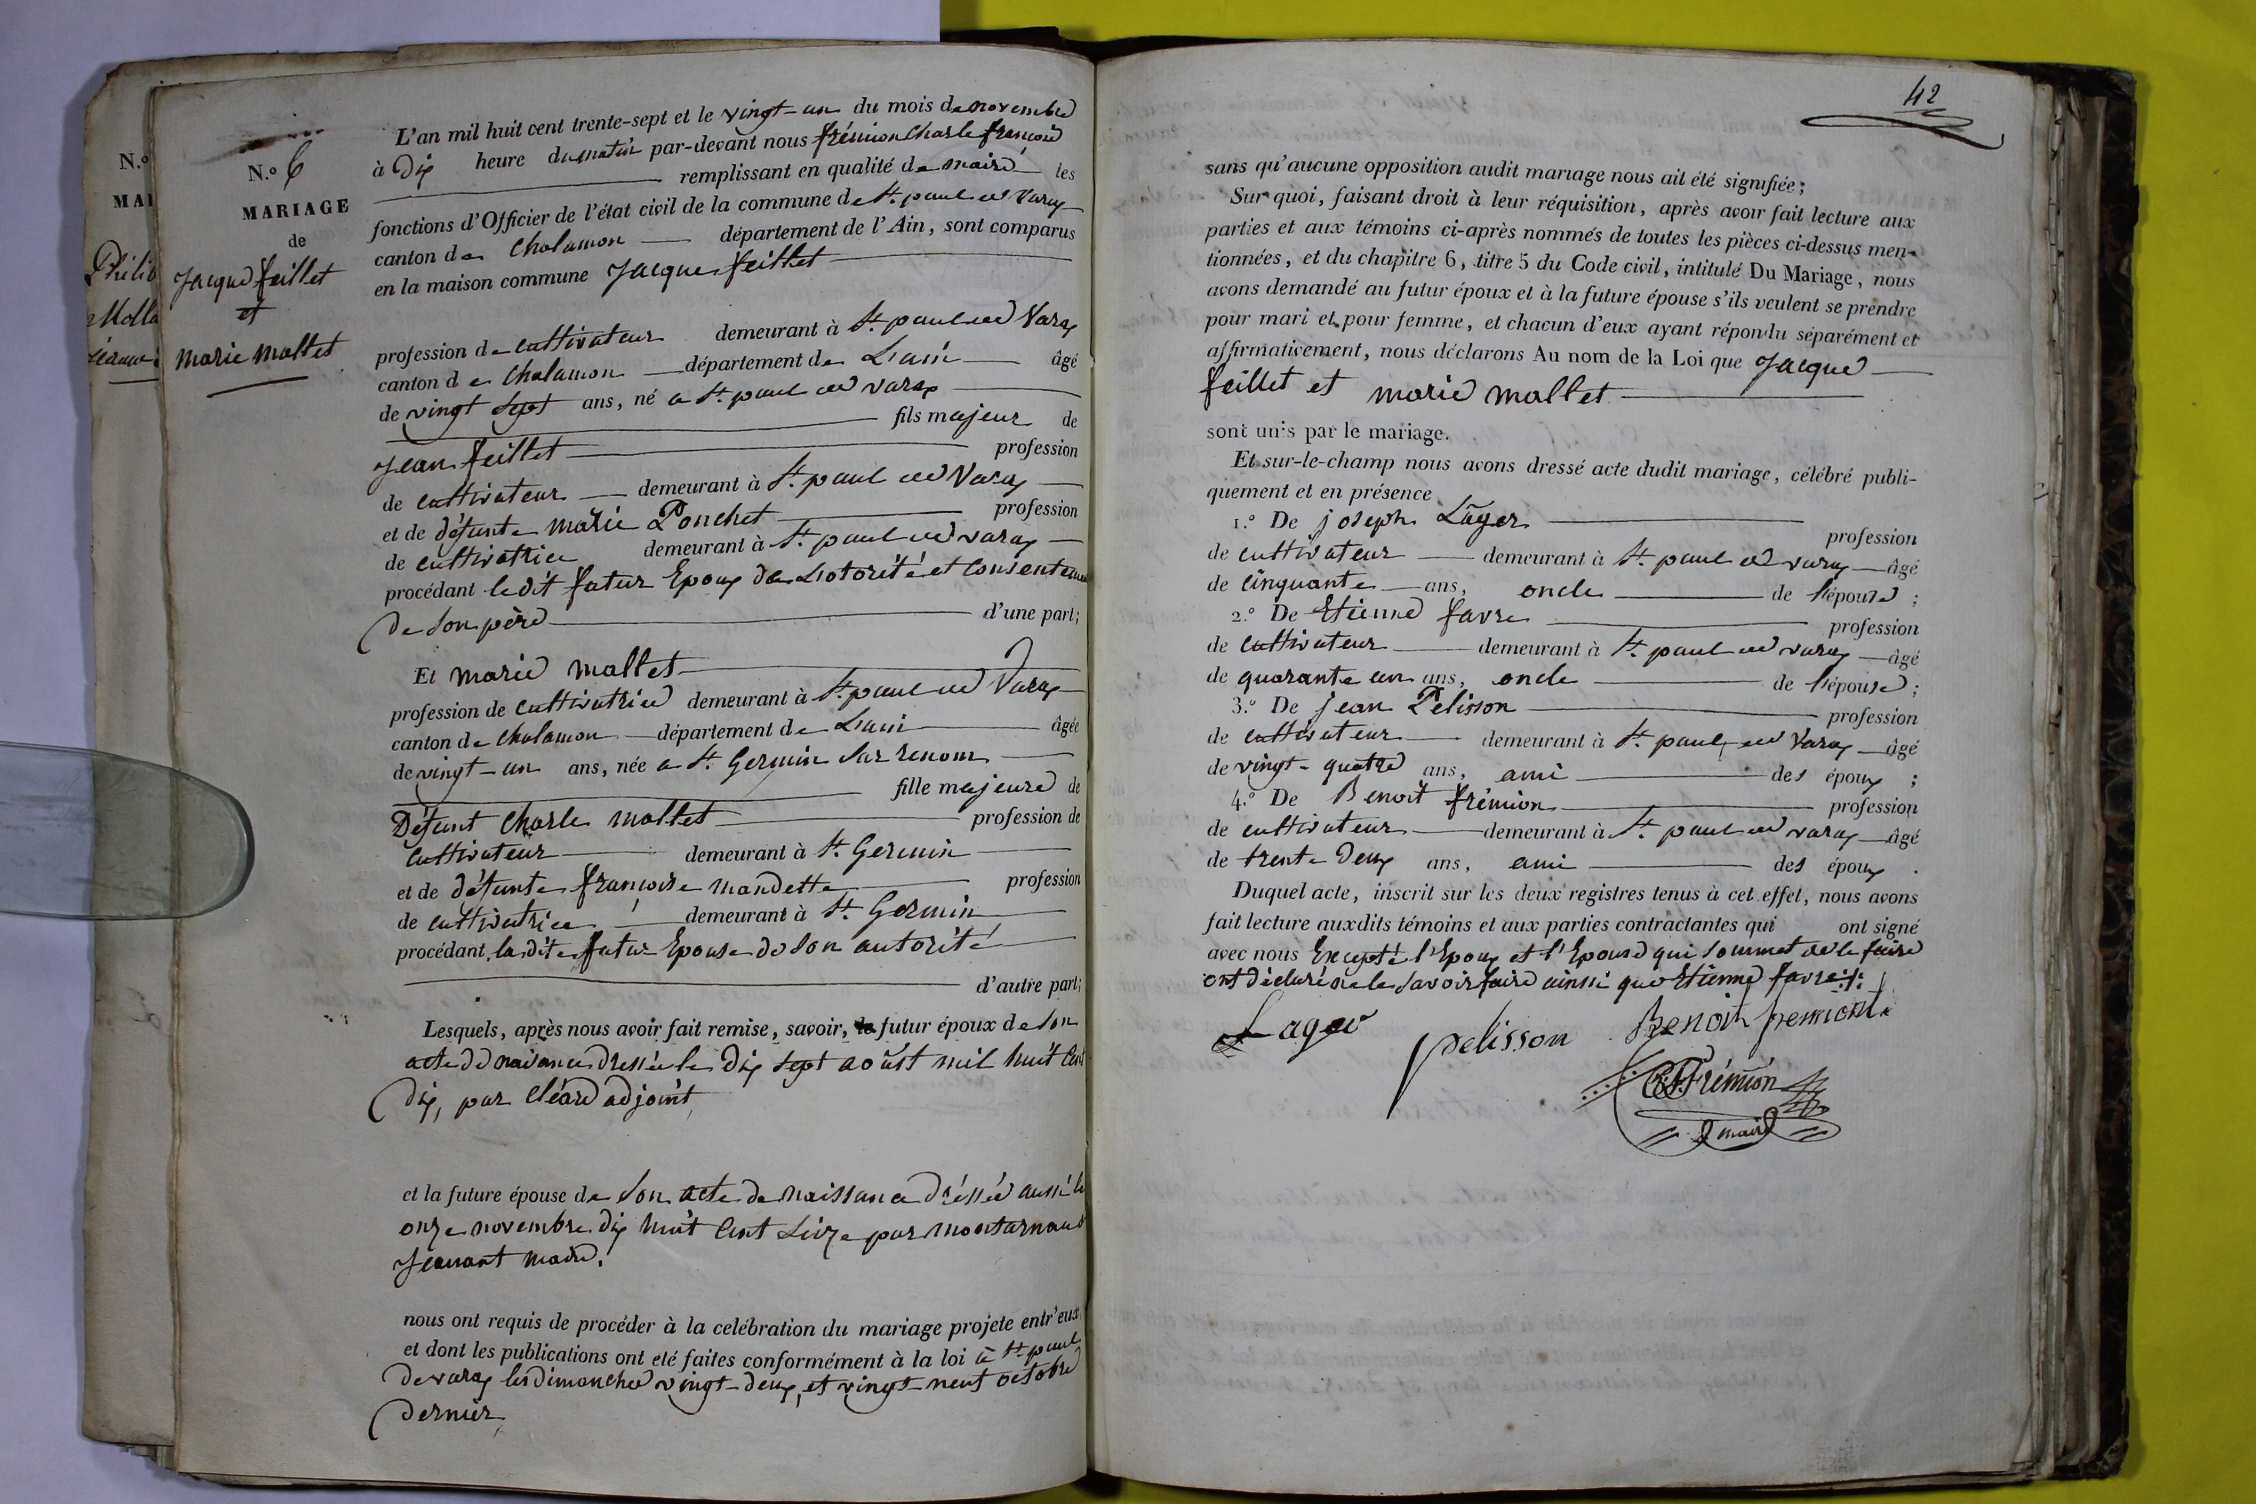 N.o
MAI
Philib
Molla
N.o 6
MARIAGE
de
Jacque feillet
et
marie mallet
L'an mil huit cent trente-sept et le vingt-un du mois de novembre
à Dix heure du matin par-devant nous frémion Charle françois
remplissant en qualité de maire les
fonctions d'Officier de l'état civil de la commune de St. paul de Varax
canton de Chalamon département de l'Ain, sont comparus
en la maison commune Jacque feillet
profession de cultivateur demeurant à St. paul de Varax
canton de Chalamon département de L'ain âgé
de vingt sept ans, né a St. paul de varax
fils majeur de
Jean feillet profession
de cultivateur demeurant à St. paul de Varax
et de défunte marie Ponchet profession
de cultivatrice demeurant à St. paul de varax
procédant le dit futur Epoux de Lotorité et Consenteme
De Son père d'une part;
Et marie mallet
profession de cultivatrice demeurant à St. paul de Varax
canton de Chalamon département de L'ain âgée
de vingt-un ans, née a St. Germin Sur renom
fille majeure de
Défunt Charle mallet profession de
Cultivateur demeurant à St. Germin
et de défunte françoise mandette profession
de cultivatrice demeurant à St. Germin
procédant la dite futur Epouse de Son autorité
d'autre part;
Lesquels, après nous avoir fait remise, savoir, le futur époux de Son
acte de naisance dressée le Dix Sept août mil huit Cent
Dix, par Cléard adjoint
et la future épouse de Son acte de naissance dréssée aussi le
onze novembre dix huit Cent Seize par montarnaud
Jeanant maire.
nous ont requis de procéder à la celébration du mariage projete entr'eux
et dont les publications ont eté faites conformément à la loi à St. paul
De varax les dimanche vingt-deux et vingt-neuf octobre
Dernier
42
sans qu'aucune opposition audit mariage nous ait été signifiée;
Sur quoi, faisant droit à leur réquisition, après avoir fait lecture aux
parties et aux témoins ci-après nommés de toutes les pièces ci-dessus men-
tionnées, et du chapitre 6, titre 5 du Code civil, intitulé Du Mariage, nous
avons demandé au futur époux et à la future épouse s'ils veulent se prendre
pour mari et pour femme, et chacun d'eux ayant répondu séparément et
affirmativement, nous déclarons Au nom de la Loi que Jacque
feillet et marie mallet
sont unis par le mariage.
Et sur-le-champ nous avons dressé acte dudit mariage, célébré publi-
quement et en présence
1.o De joseph Lager profession
de cultivateur demeurant à St. paul de varax âgé
de Cinquante ans, oncle de l'épouse ;
2.o De Etienne favre profession
de cultivateur demeurant à St. paul de varax âgé
de quarante un ans, oncle de l'épouse ;
3.o De jean Pelisson profession
de cultivateur demeurant à St. paul de Varax âgé
de vingt-quatre ans, ami des époux ;
4.o De Benoît frémion profession
de cultivateur demeurant à St. paul de varax âgé
de trente Deux ans, ami des époux .
Duquel acte, inscrit sur les deux registres tenus à cet effet, nous avons
fait lecture auxdits témoins et aux parties contractantes qui ont signé
avec nous Excepté l'Epoux et l'Epouse qui Sommet de le faire
ont déclaré ne le Savoir faire ainsi que Etienne favre
Lager
pelisson
Benoit fremion
CF Frémion
maire